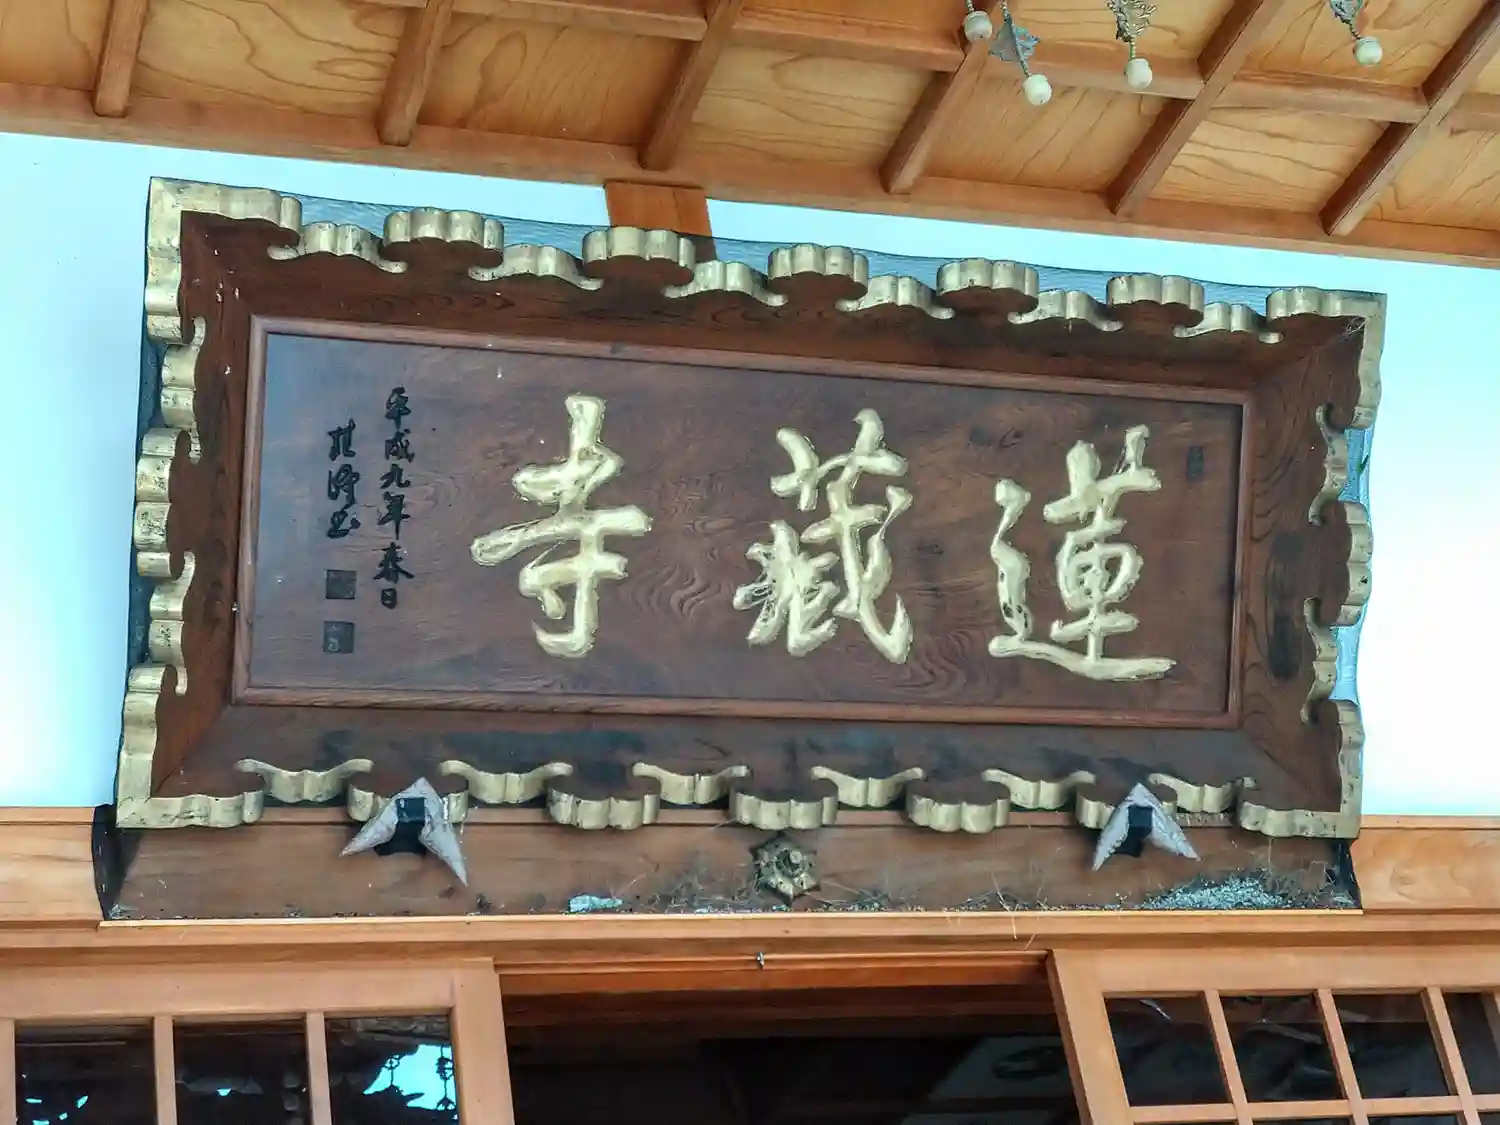 蓮藏寺
平成九年春日